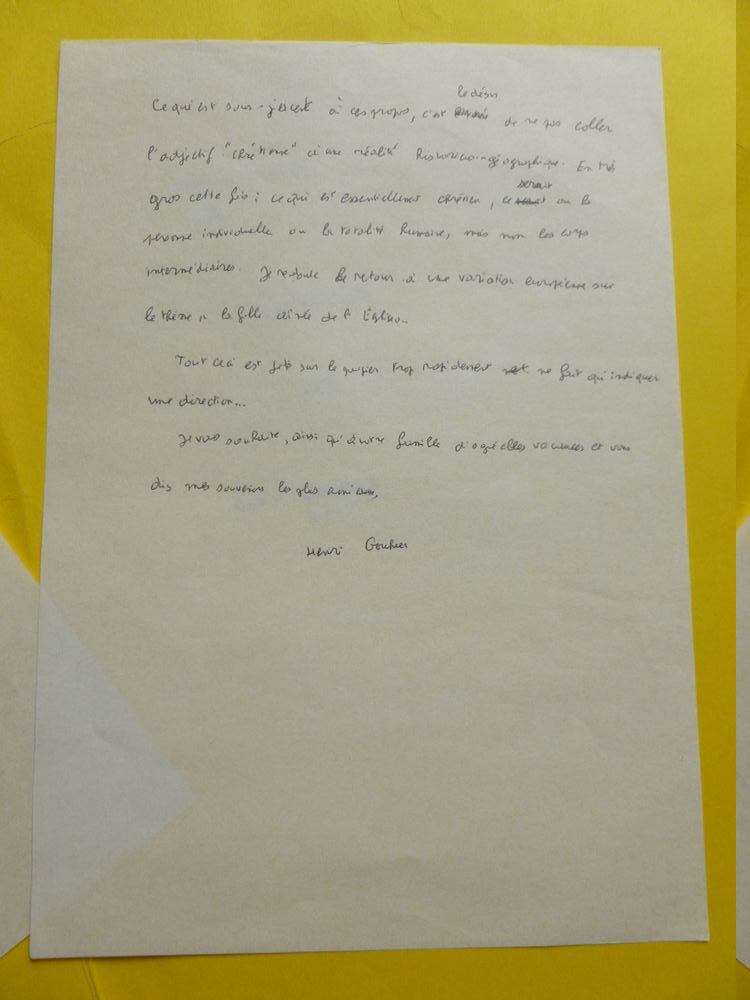 le désir
Ce qui est sous-jacent à ces propos, c'est de ne pas coller
l'adjectif "chrétienne" à une réalité historico-géographique. En très
serait
gros cette fois : ce qui est essentiellement chrétien, ce ou la
personne individuelle ou la totalité humaine, mais non les corps
intermédiaires. Je redoute le retour à une variation européenne sur
le thème " la fille aînée de l'Église".
Tout ceci est jeté sur le papier trop rapidement et ne fait qu'indiquer
une direction...
Je vous souhaite, ainsi qu'à votre famille d'agréables vacances et vous
dis mes souvenirs les plus amicaux,
Henri Gouhier